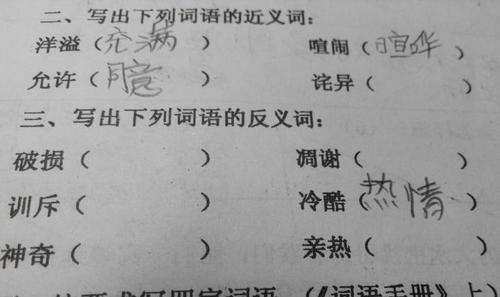 二、写出下列词语的近义词：
洋溢（充满）　喧闹（喧哗）
允许（同意）　诧异（　）
三、写出下列词语的反义词：
破损（　）　凋谢（　）
训斥（　）　冷酷（热情）
神奇（　）　亲热（　）
求写四字词语（《词语手册》上）